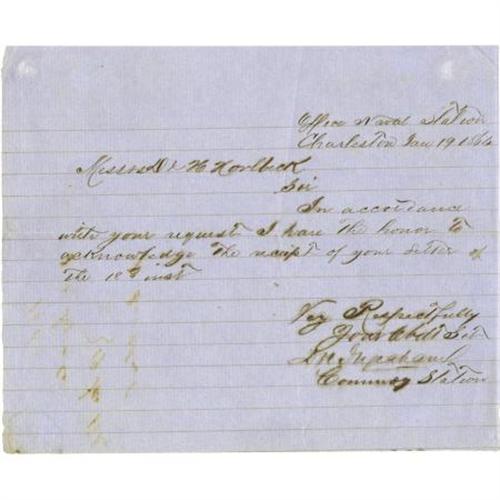 Office Naval Station
Charleston Jan 19. 1864
Messrs D & H Horlbeck
Sir
In accordance
with your request I have the honor to
acknowledge the recipt of your Letter of
the 18th inst
Very Respectfully
Your Obdt Svt
Station